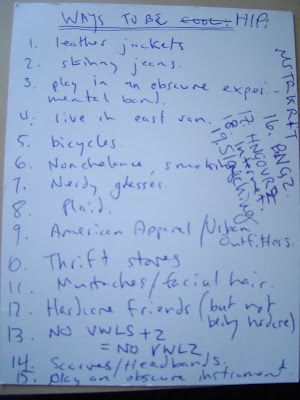 WAYS TO BE COOL: HIP:
1. leather jackets
2. skinny jeans.
3. play in an obscure experi-
mental band.
4. live in east van.
5. bicycles.
6. Nonchalence, smoking
7. Nerdy glasses.
8. Plaid.
9. American Apparel/Urban
Outfitters.
10. Thrift stores
11. Mustaches/facial hair.
12. Hardcore friends (but not
being hardcore)
13. NO VWLS + Z
= NO VWLZ
14. Scarves/Headbands.
15. play an obscure instrument.
MSTRKRFT
16. BNGZ
17. HNGOVRZ
18. Internet.
19. Slouching